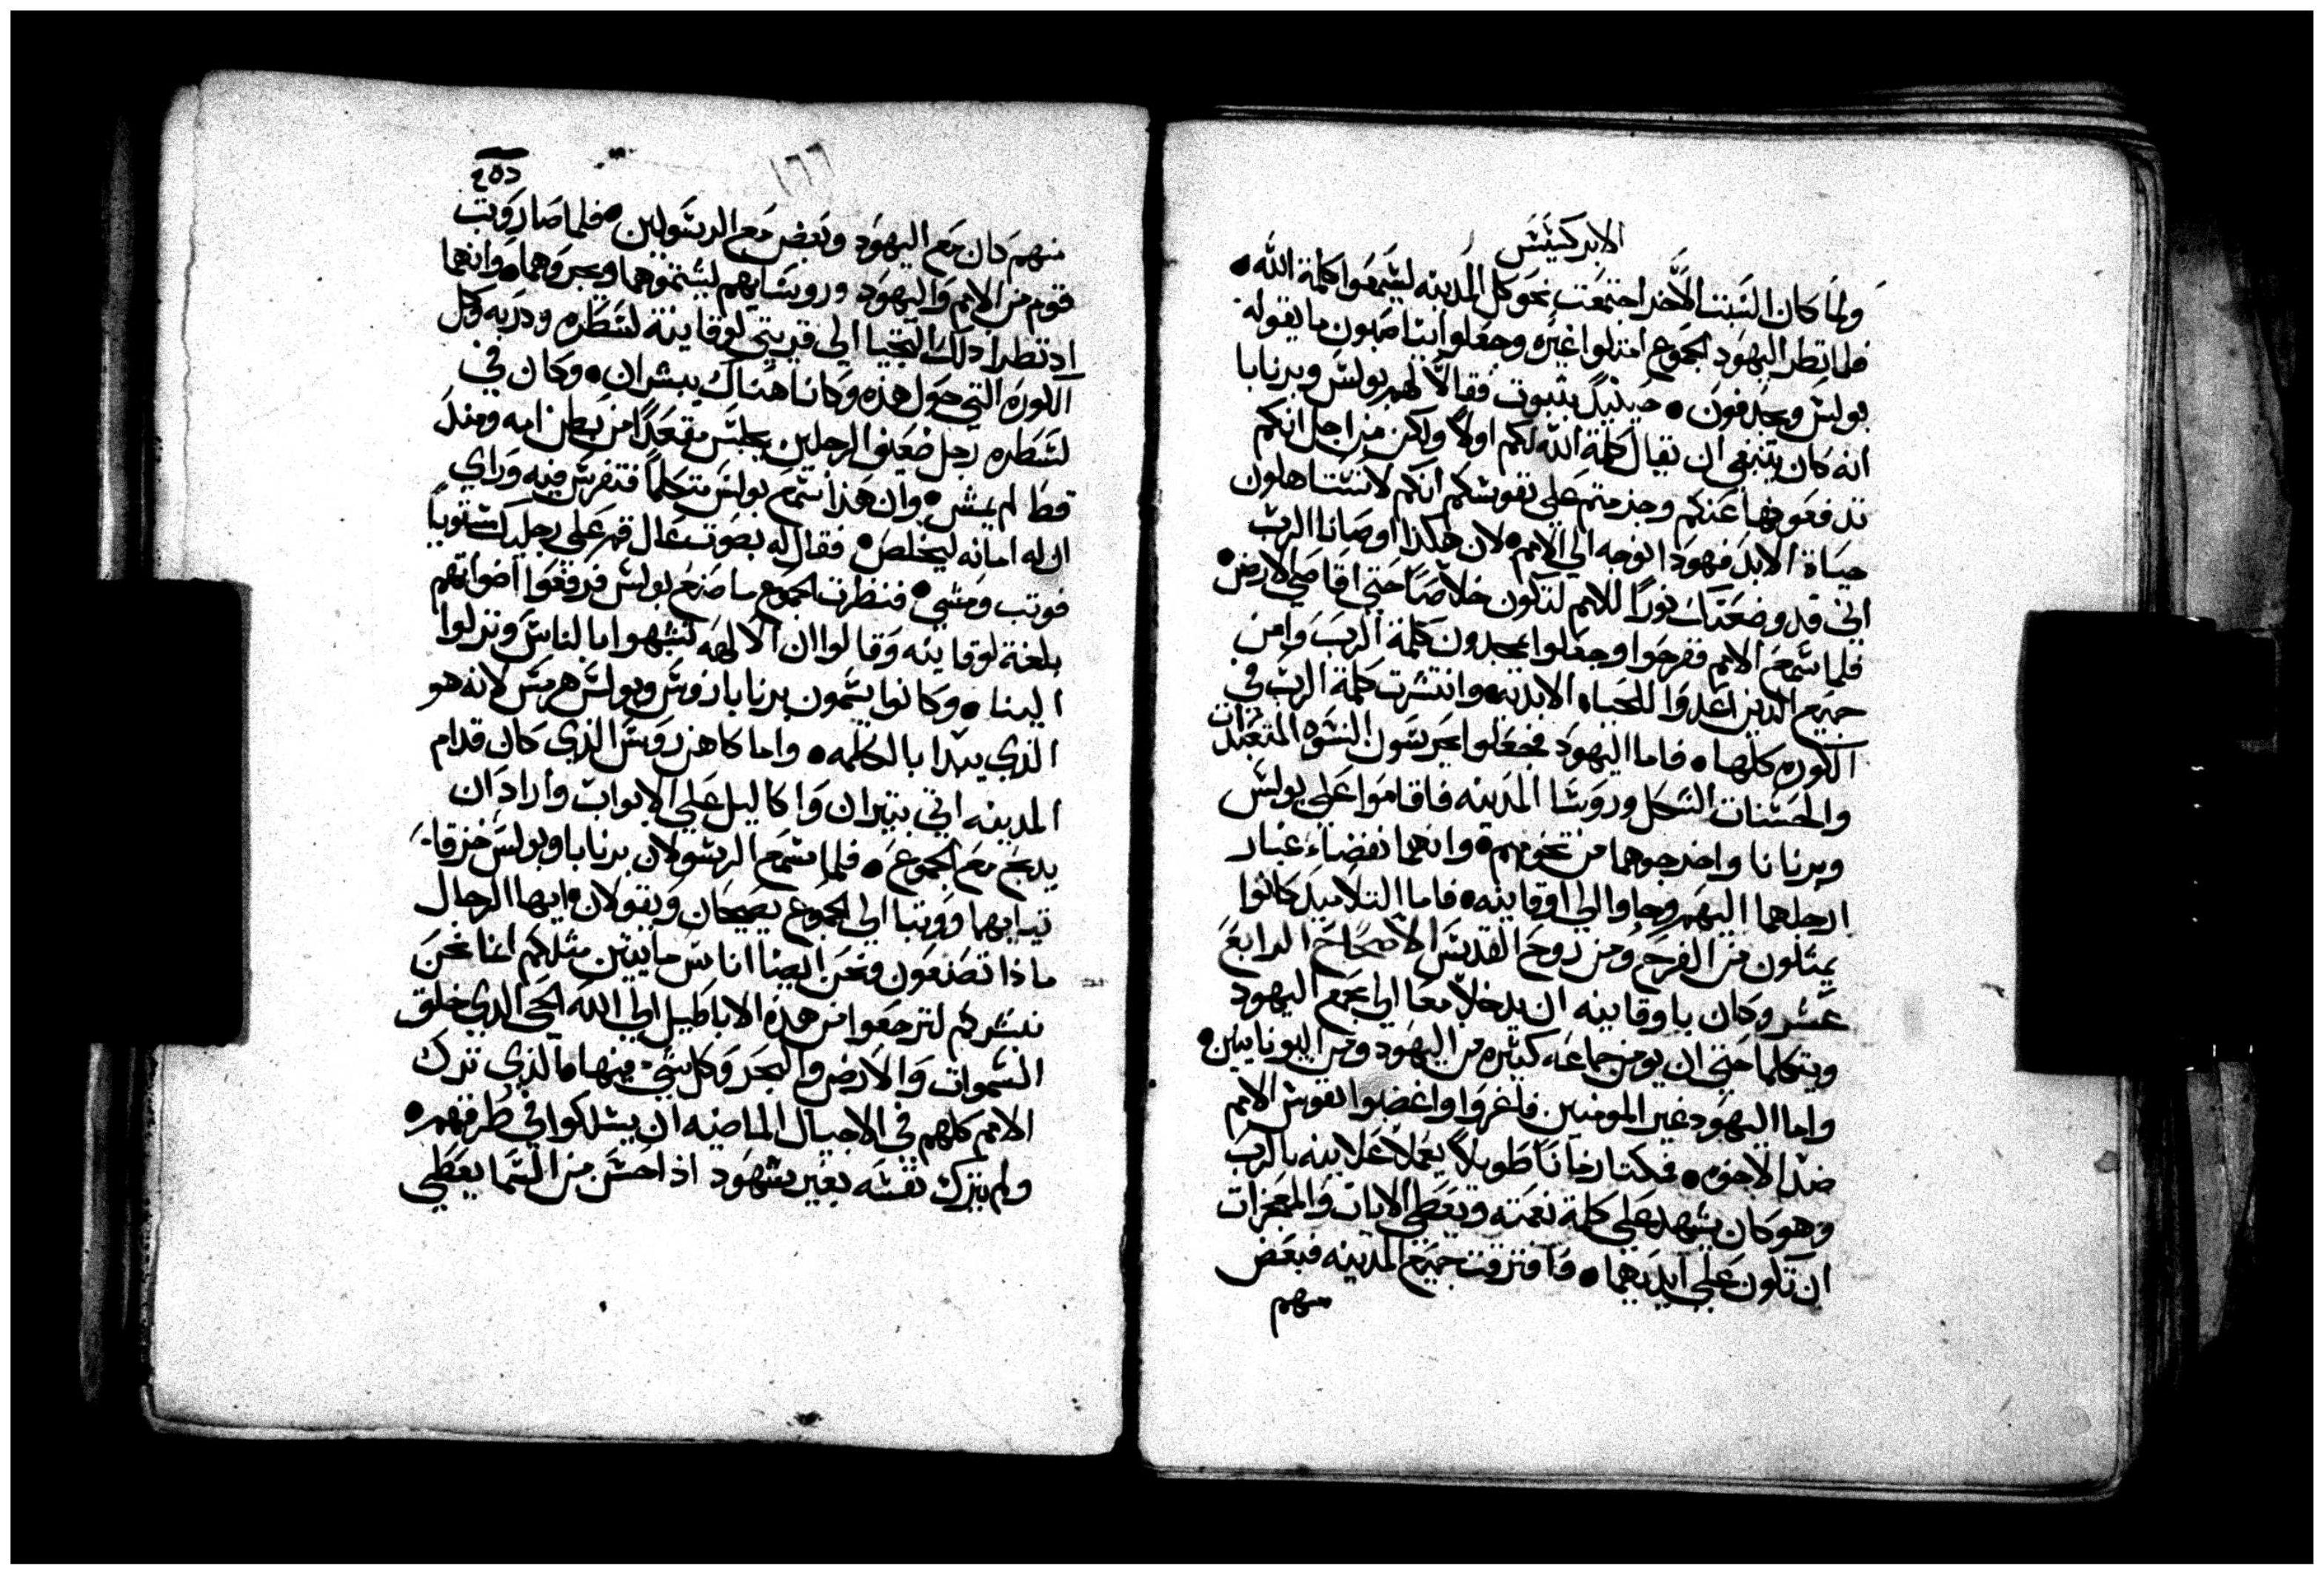 الابركسيس
ولما كان السبت الاخر اجتمعت نحو كل المدينه ليسمعوا كلمة الله •
فلما نظر اليهود الجموع امتلوا غيره وجعلوا يناصبون ما يقوله
بولس ويجدفون • حينيذ بثبوت فقالا لهم بولس وبرنابا
انه كان ينبغي ان تقال كلمة الله لكم اولا ولكن من اجل انكم
تدفعونها عنكم وجزمتم على نفوسكم انكم لا تستاهلون
حياة الابد فهودا نوجه الي الامم • لان هكذا اوصانا الرب
اني قد وضعتك نورا للامم لتكون خلاصا حتي اقاصي الارض •
فلما سمع الامم ففرحوا وجعلوا يمجدون كلمة الرب وامن
جميع الذين اعدوا للحياه الابديه • وانتشرت كلمة الرب في
الكوره كلها • فاما اليهود فجعلوا يحرسون النسوه المتعبدات
والحسنات الشكل وروسا المدينه فاقاموا على بولس
وبرنابا واخرجوهما من تخومهم • وانهما نفضا غبار
ارجلهما اليهم وجاوا الي اوقانيه • فاما التلاميذ كانوا
يمتلون من الفرح ومن روح القدس الاصحاح الرابع
عشر وكان باوقانيه ان يدخلا معا الي مجمع اليهود
ويتكلما حتي ان يومن جماعه كثيره من اليهود ومن اليونانيين •
واما اليهود غير المومنين فاغروا واغضبوا نفوس الامم
ضد الاخوه • فمكثا زمانا طويلا يعملا علانيه بالرب
وهو كان يشهد على كلمة نعمته ويعطي الايات والمعجزات
ان تكون على ايديهما • فافترقت جميع المدينه فبعض
منهم
١٦٦
منهم كان مع اليهود وبعض مع الرسولين • فلما صار وثب
قوم من الامم واليهود وروسايهم ليشتموهما ويرجموهما • وانهما
اذ نظرا ذلك التجيا الي قريتي لوقانية لسطره ودربه وكل
الكوره التي حول هذه وكانا هناك يبشران • وكان في
لسطره رجل ضعيف الرجلين يجلس مقعدا من بطن امه ومنذ
قط لم يمش • وان هذا سمع بولس متكلما فتفرس فيه وراي
ان له امانه ليخلص • فقال له بصوت عال قم على رجليك مستويا
فوثب ومشي • فنظرت الجموع ما صنع بولس فرفعوا اصواتهم
بلغة لوقانيه وقالوا ان الالهه تشبهوا بالناس ونزلوا
الينا • وكانوا يسمون برنابا زوس وبولس هرمس لانه هو
الذي يبدا بالكلمه • واما كاهن زوس الذي كان قدام
المدينه اتي بثيران واكاليل على الابواب واراد ان
يدبح مع الجموع • فلما سمع الرسولان برنابا وبولس خرقا
ثيابهما ووثبا الي الجموع يصيحان ويقولان ايها الرجال
ماذا تصنعون ونحن ايضا اناس مايتين مثلكم انما نحن
نبشركم لترجعوا من هذه الاباطيل الي الله الحي الذي خلق
السموات والارض والبحر وكل شي فيها الذي ترك
الامم كلهم في الاجيال الماضيه ان يسلكوا في طرقهم •
ولم يترك نفسه بغير شهود اذ احسن من السما يعطي